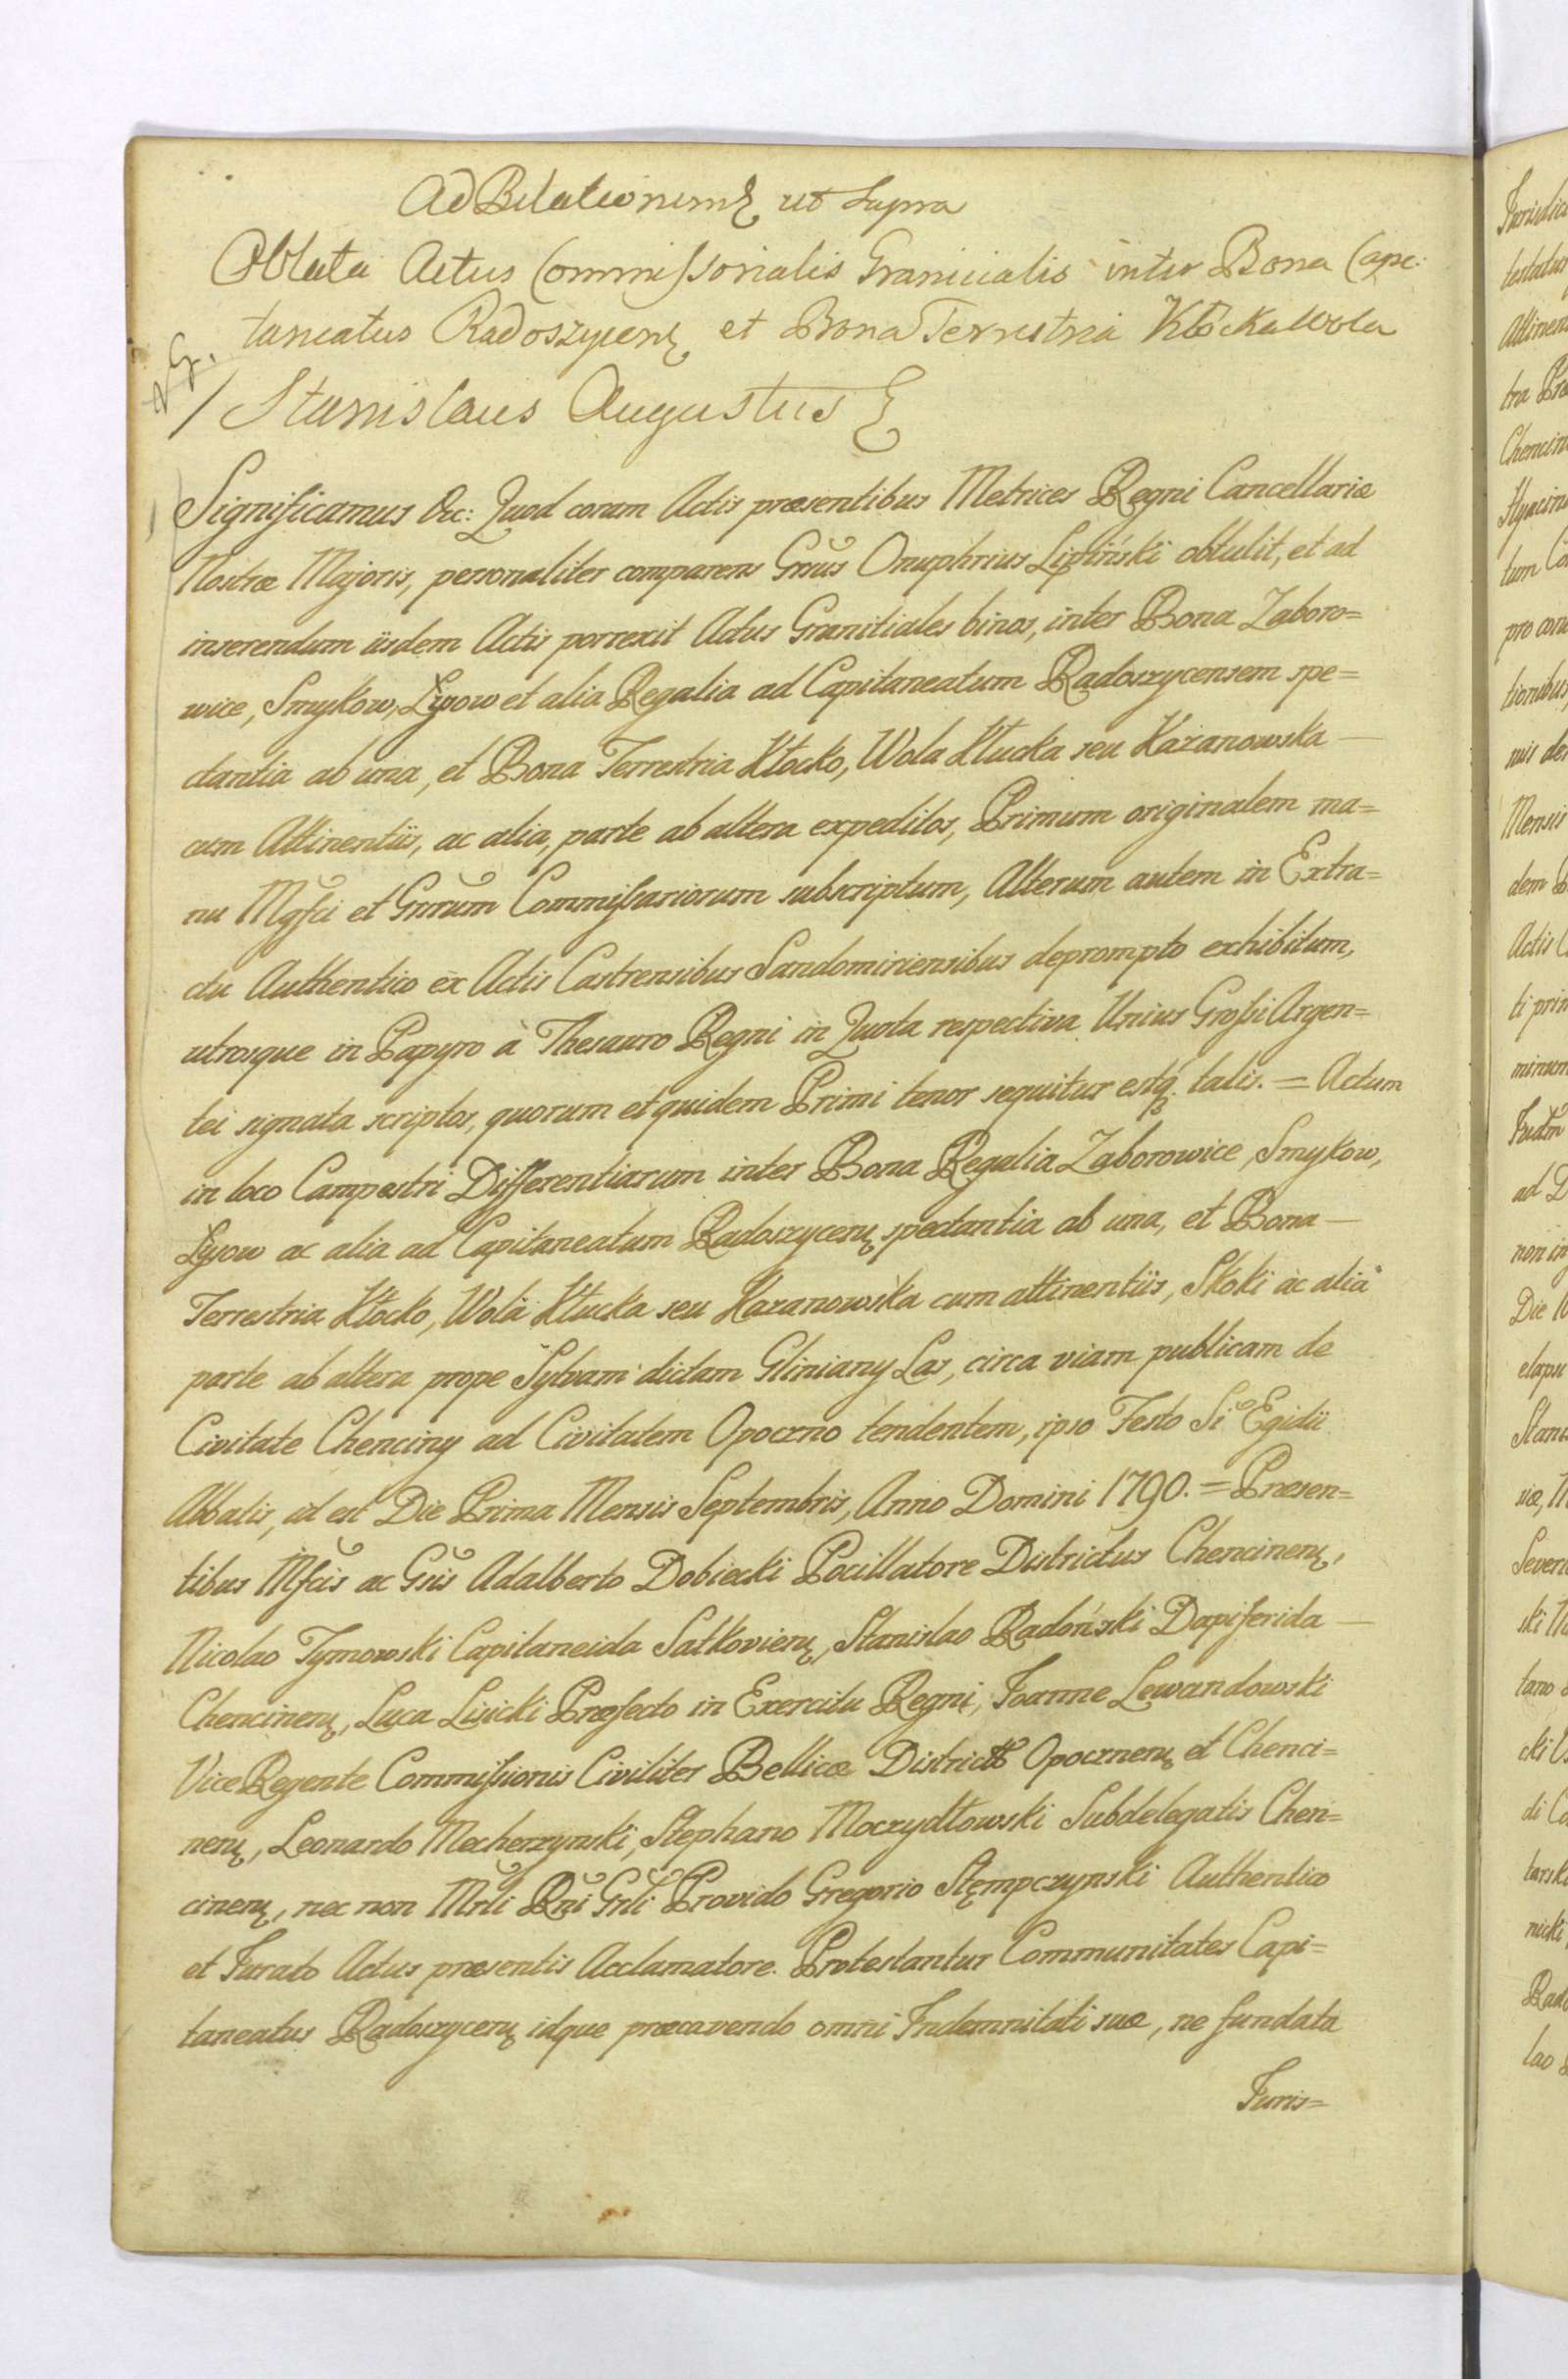 Ad Relationem ut Supra
Oblata Actus Commissorialis Granicialis inter Bona Capi:
taneatus Radoszycen et Bona Terrestria Kłocka Wola
Stanislaus Augustus
Significamus &c: Quod coram Actis præsentibus Metrices Regni Cancellariæ
Nostræ Majoris, personaliter comparens Grsus Onuphrius Lipiński obtulit, et ad
inserendum iisdem Actis porrexit Actus Granitiales binos, inter Bona Zaboro=
wice, Smykow, Lipow et alia Regalia ad Capitaneatum Radoszycensem spe=
ctantia ab una, et Bona Terrestria Kłocko, Wola Kłucka seu Kazanowska —
cum Attinentiis, ac alia, parte ab altera expeditos, Primum originalem ma=
nu Mgfci et Grrum Commissariorum subscriptum, Alterum autem in Extra=
ctu Authentico ex Actis Castrensibus Sandomiriensibus deprompto exhibitum,
utrosque in Papyro à Thesauro Regni in Quota respectiva Unius Grossi Argen=
tei signata scriptos, quorum et quidem Primi tenor sequitur estq. talis. = Actum
in loco Campestri Differentiarum inter Bona Regalia Zaborowice, Smykow,
Lipow ac alia ad Capitaneatum Radoszycen spectantia ab una, et Bona —
Terrestria Kłocko, Wola Kłucka seu Kazanowska cum attinentiis, Skoki ac alia
parte ab altera prope Sylvam dictam Gliniany Las, circa viam publicam de
Civitate Chenciny ad Civitatem Opoczno tendentem, ipso Festo Si Egidii
Abbatis, id est Die Prima Mensis Septembris, Anno Domini 1790. = Præsen=
tibus Mfcis ac Gsis Adalberto Dobiecki Pocillatore Districtus Chencinen,
Nicolao Tymowski Capitaneida Satkovien, Stanislao Radoński Dapiferida —
Chencinen, Luca Lisicki Præfecto in Exercitu Regni, Joanne Lewandowski
Vice Regente Commissionis Civiliter Bellicæ Districtus Opocznen et Chenci=
nen, Leonardo Mecherzynski, Stephano Moczydłowski Subdelegatis Chen=
cinen, nec non Mrli Rni Gnli Provido Gregorio Stęmpczynski Authentico
et Jurato Actus præsentis Acclamatore. Protestantur Communitates Capi=
taneatus Radoszycen idque præcavendo omni Indemnitati suæ, ne fundata
Juris=